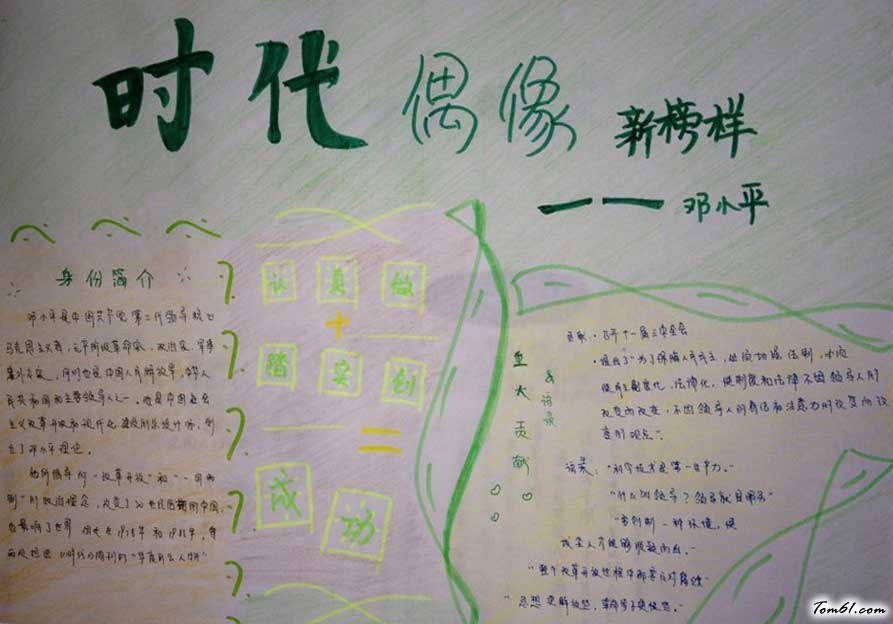 时代偶像 新榜样
—— 邓小平
身份简介
邓小平是中国共产党第二代领导核心
马克思主义者,无产阶级革命家、政治家、军事
家外交家,
民共和国的主要领导人之一。他是中国社会
主义改革开放和现代化建设的总设计师,创
立了邓小平理论。
他所倡导的“改革开放”和“一国两
制”的政治理念,改变了20世纪后期的中国,
也影响了世界 1978年 和1985年,
《时代》周刊的“年度风云人物”
认真做
+
踏实创
=
成功
重大贡献 &语录
贡献:召开十一届三中全会
提出了“为了保障人民民主,必须加强法制,必须
使民主制度化,法律化,使制度和法律不因领导人的
改变而改变,不因领导人的看法和注意力的改变而改
变的观点”。
语录:“科学技术是第一生产力。”
“什么叫领导?领导就是服务”
“要创造一种环境,使
拔尖人才能够脱颖而出。”
“整个改革开放过程中都要反对腐蚀”
“思想更解放些,
Tom61.com